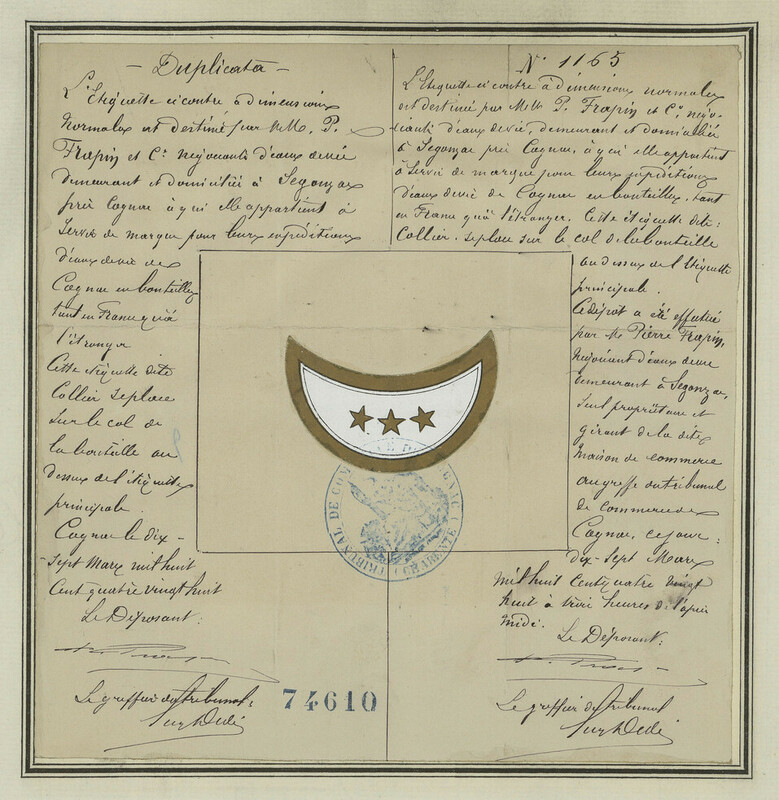 - Duplicata -
L'Etiquette ci contre à dimensions
normales est destiné par MM. P.
Frapin et Cie négociants d'eaux de vie
demeurant et domicilié à Segonzac
près Cognac à qui elle appartient à
servir de marque pour leurs expéditions
d'eaux de vie de
Cognac en bouteilles
tant en France qu'à
l'étranger
Cette étiquette dite
Collier se place
sur le col de
la bouteille au
dessus de l'étiquette
principale.
Cognac le dix-
sept Mars mil huit
Cent quatre vingt huit
Le Déposant:
Le greffier du tribunal:
N° 1165
L'Etiquette ci contre à dimensions normales
est destiné par MM. P. Frapin et Cie négo-
ciants d'eaux de vie, demeurant et domicilié
à Segonzac près Cognac, à qui elle appartient
à servir de marque pour leurs expéditions
d'eaux de vie de Cognac en bouteilles, tant
en France qu'à l'étranger. Cette étiquette dite:
Collier, se place sur le col de la bouteille
au dessus de l'étiquette
principale.
Ce dépôt a été effectué
par M. Pierre Frapin,
négociant d'eaux de vie
demeurant à Segonzac,
seul propriétaire et
gérant de la dite
maison de commerce
au greffe du tribunal
de commerce de
Cognac, ce jour:
dix-sept Mars
mil huit cent quatre vingt
huit à trois heures de l'après
midi.
Le Déposant:
Le greffier du tribunal
TRIBUNAL DE COM
GNAC
(CHARENTE)
74610